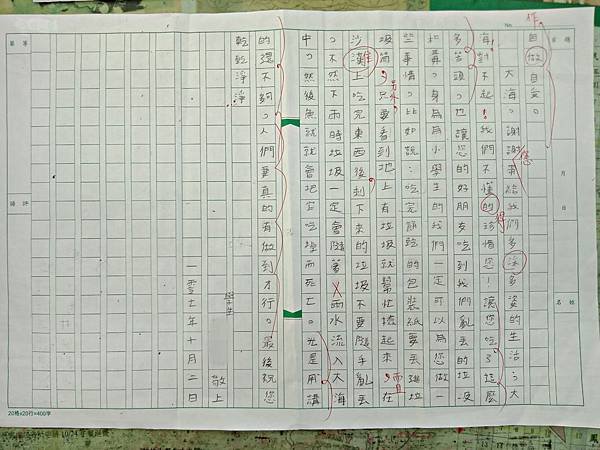 No.
月
日
姓名
作
自做自受。
大海,謝謝您給我們多采多姿的生活,大
海對不起!我們不懂的珍惜您!讓您吃了這麼
多苦頭。也讓您的好朋友吃到我們亂丟的垃圾
和毒。身為小學生的我們一定可以為您做一
些事情。比如說:吃完的包裝紙要丟進垃
圾筒,只要看到地上有垃圾就幫忙撿起來,而且在
沙灘上吃完東西後,剩下來的垃圾不要隨手亂丟
,不然下雨時垃圾一定會隨著雨水流入大海
中。然後魚就會把它吃進而死亡。光是用講
的還不夠。人們要真的有做到才行。最後祝您
乾乾淨淨
學生
敬上
一零七年十月二日
20格x20行=400字